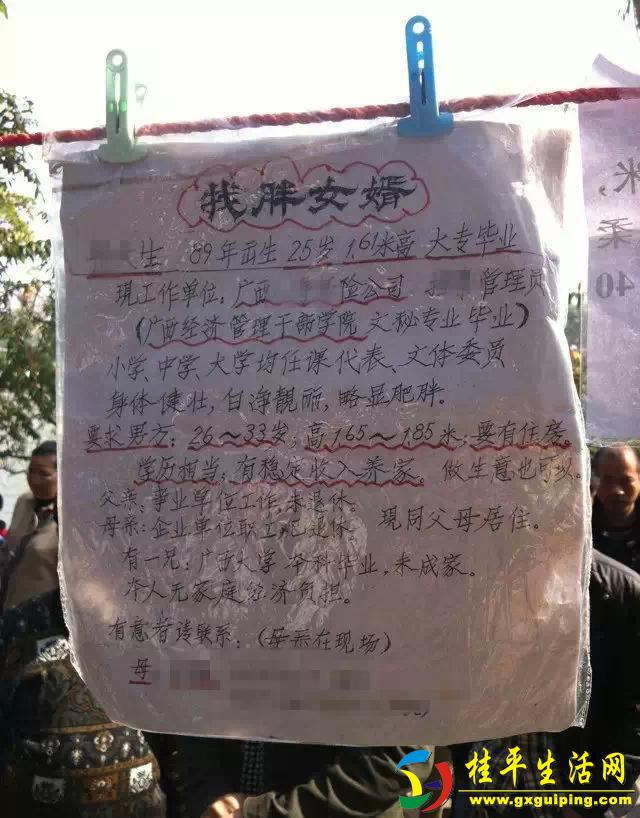 找胖女婿
生 89年出生 25岁 1.61米高 大专毕业
现工作单位:广西 险公司 管理员
(广西经济管理干部学院 文秘专业毕业)
小学、中学、大学均任课代表、文体委员
身体健壮,白净靓丽,略显肥胖。
要求男方:26~33岁;高1.65~1.85米;要有住房。
学历相当;有稳定收入养家。做生意也可以。
父亲:事业单位工作,未退休。
母亲:企业单位职工,已退休。 现同父母居住。
有一兄:广西大学 本科毕业,未成家。
本人无家庭经济负担。
有意者请联系:(母亲在现场)
母
米,
柔
40
桂平生活网
www.gxguiping.com